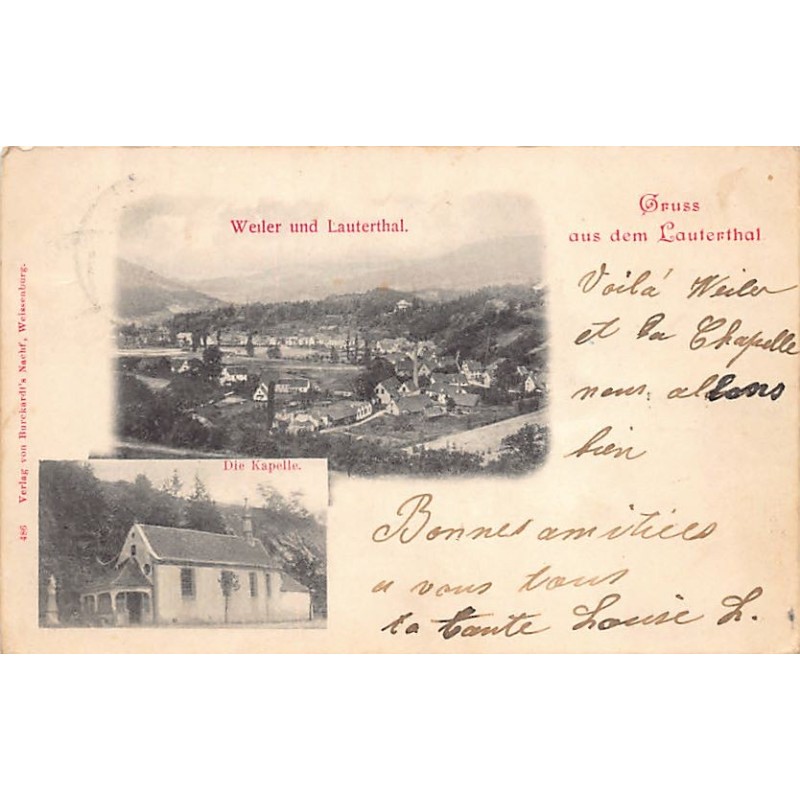 Weiler und Lauterthal.
Gruss
aus dem Lauterthal
Voilà Weiler
et la Chapelle
nous allons
bien
Die Kapelle.
Bonnes amitiées
a vous tous
ta tante Louise L.
486 Verlag von Burckardt's Nachf, Weissenburg.